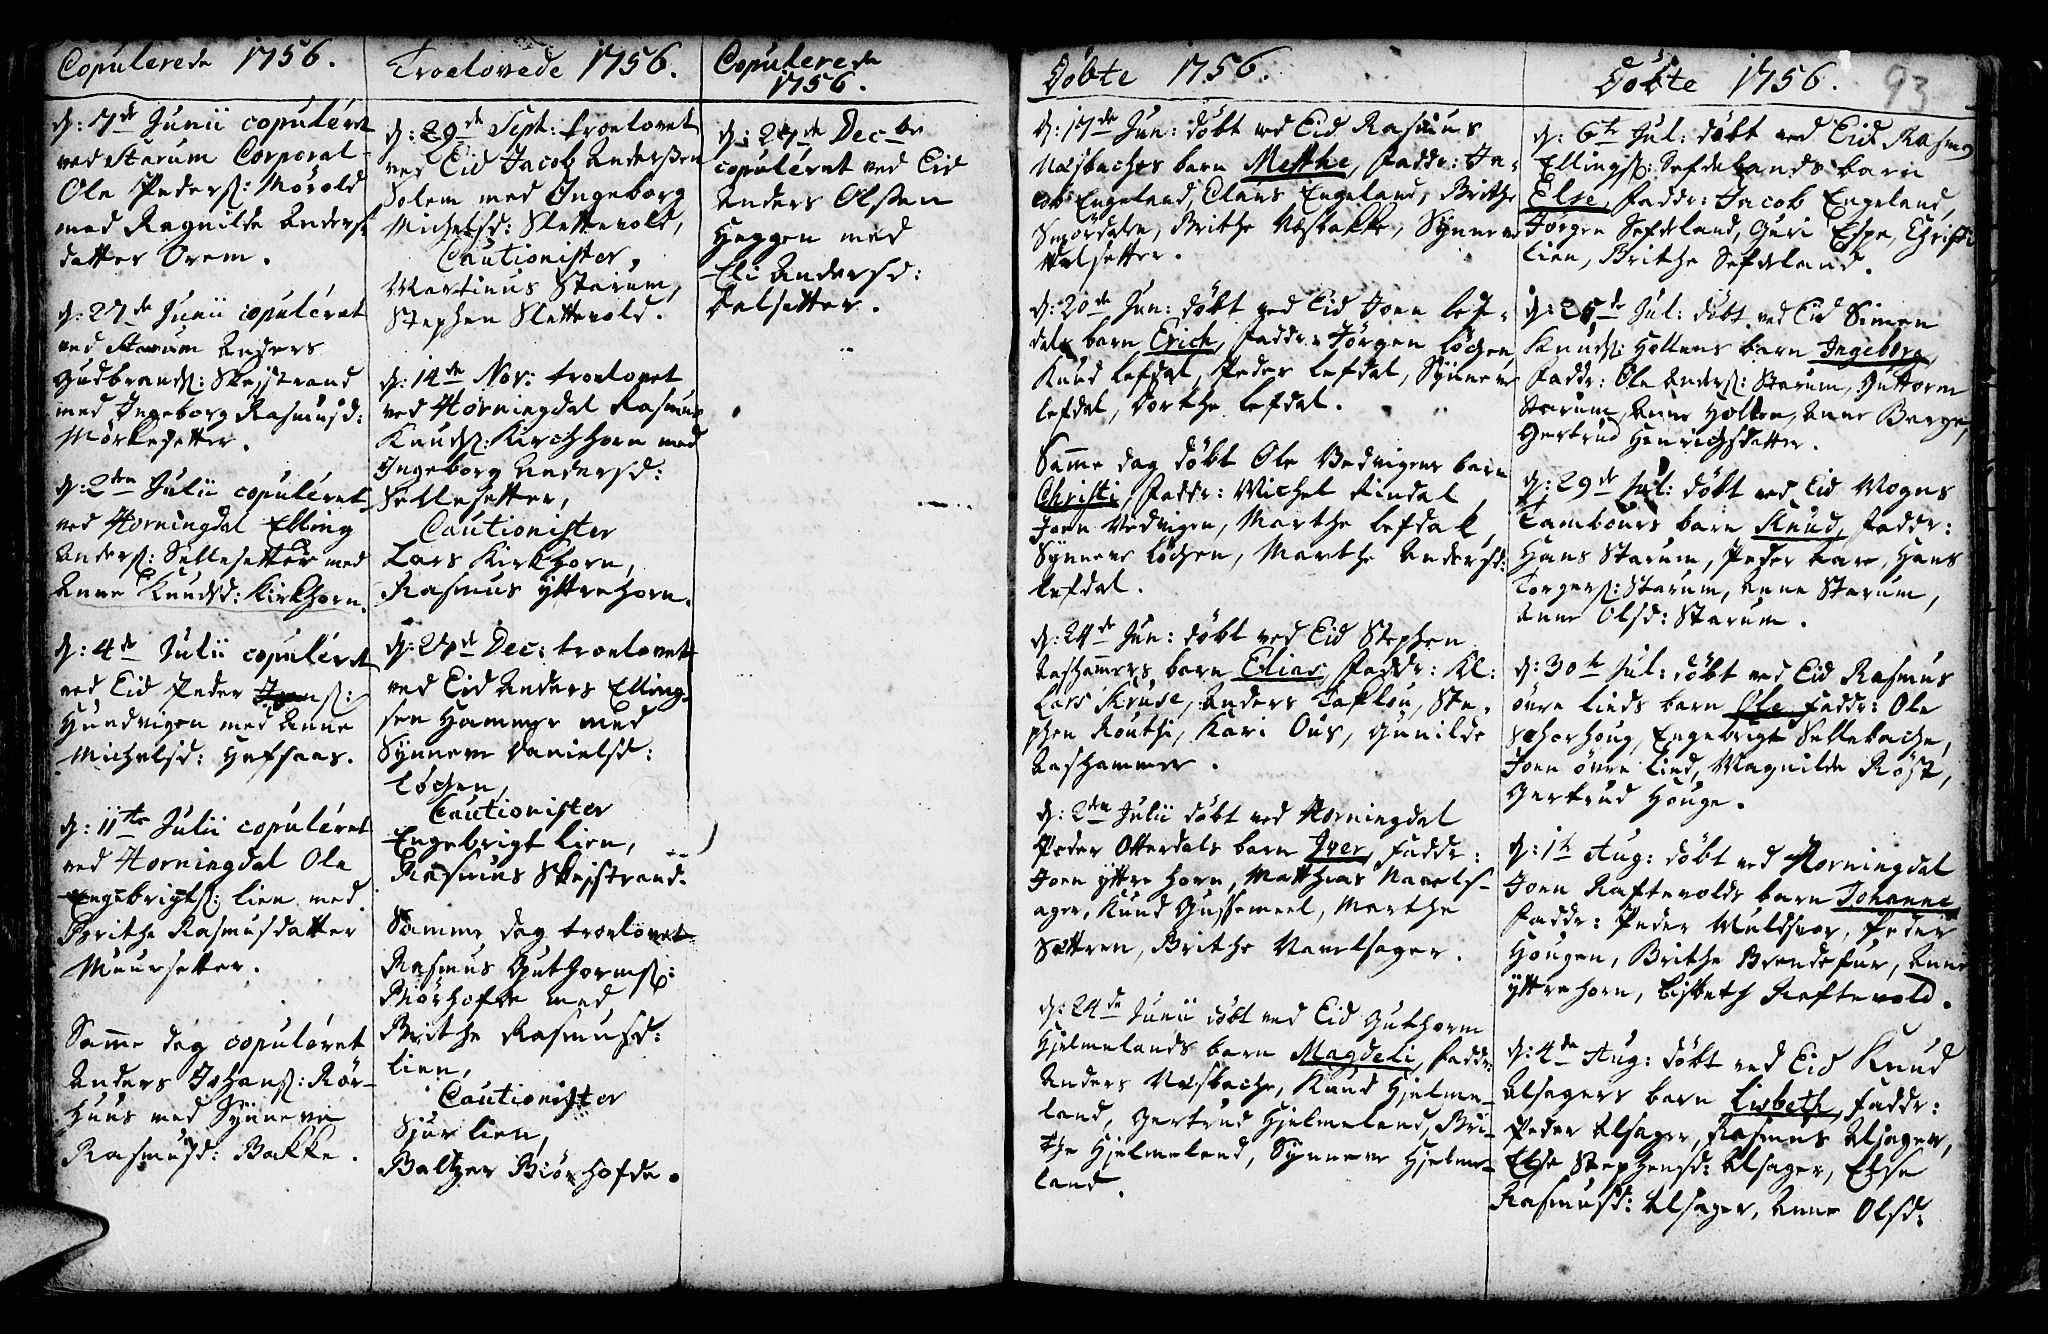 Copulerede 1756.
d: 17de Junii copuléret
ved Starum Corporal
Ole Peders: Mörold
med Ragnilde Anders
datter Orem.
d: 27de Junii copuléret
ved Starum Anders
Gudbrands: Skejstrand
med Ingeborg Rasmusd:
Mörkesetter.
d: 2den Julii copuléret
ved Horningdal Elling
Anders: Sellesetter med
Anne Knudsd: Kirkhorn.
d: 4de Julii copuléret
ved Eid Peder
Hundvigen med Anne
Michelsd: Hefsaas.
d: 11te Julii copuléret
ved Horningdal Ole
Engebrigts: Lien med
Brithe Rasmusdatter
Muursetter.
Samme dag copuléret
Anders Johans: Rör-
huus med Synneve
Rasmusd: Bakke.
Troelovede 1756.
d: 29de Sept: troelovet
ved Eid Jacob Andersen
Solem med Ingeborg
Michelsd: Slettevold,
Cautionister,
Martinus Starum,
Stephen Slettevold.
d: 14de Nov: troelovet
ved Horningdal Rasmus
Knuds: Kirchhorn med
Ingeborg Andersd:
Sellesetter,
Cautionister
Lars Kirkhorn,
Rasmus Yttrehorn.
d: 27de Dec: troelovet
ved Eid Anders Elling-
sen Hammer med
Synneve Danielsd:
Løchen,
Cautionister
Engebrigt Lien,
Rasmus Skejstrand.
Samme dag troelovet
Rasmus Guthorms:
Biörhofde med
Brithe Rasmusd:
Lien,
Cautionister
Sjur Lien,
Baltzer Biörhofde.
Copulerede
1756.
d: 27de Decbr
copuléret ved Eid
Anders Olssen
Heggen med
Eli Andersd:
Dalsetter.
Döbte 1756.
d: 17de Jun: döbt ved Eid Rasmus
Nosbaches barn Metthe, Faddr: Ja-
cob Engeland, Claus Engeland, Brithe
Smördalen, Brithe Nosbakke, Synneve
d: 20de Jun: döbt ved Eid Joen Lef-
dals barn Erich, Faddr: Jörgen Löchen
Knud Lefdal, Peder Lefdal, Synneve
Lefdal, Dorthe Lefdal.
Samme dag döbt Ole Vedvigens barn
Christi, Faddr: Michel Findal
Joen Vedvigen, Marthe Lefdal,
Synneve Löchen, Marthe Andersd:
Lefdal.
d: 24de Jun: döbt ved Eid Stephen
Aashammers barn Elias, Faddr: Kl:
Lars Kruse, Anders Taflou, Ste-
phen Routhi, Kari Ous, Gunilde
Aashammer.
d: 2den Julii döbt ved Horningdal
Peder Otterdals barn Iver, Faddr:
Joen Yttrehorn, Matthias Navels-
ager, Knud Gussemeel, Marthe
Sætren, Brithe Navelsager.
d: 24de Junii döbt ved Eid Guthorm
Hjelmelands barn Magdeli, Faddr:
Anders Nosbache, Knud Hjelme-
land, Gertrud Hjelmeland, Bri-
the Hjelmeland, Synneve Hjelme-
land.
Döbte 1756.
93
d: 6te Jul: döbt ved Eid Rasmus
Ellings: Sefdelands barn
Else, Faddr: Jacob Engeland,
Jörgen Sefdeland, Guri Espe, Christi
Lien, Brithe Sefdeland.
d: 25de Jul: döbt ved Eid Simen
Knuds: Holtens barn Ingeborg
Faddr: Ole Anders: Starum, Guttorm
Starum, Anne Holten, Anne Berge,
Gertrud Henrichsdatter.
d: 29de Jul: döbt ved Eid Mogns
Tambours barn Knud, Faddr:
Hans Starum, Peder Aare, Hans
Torgers: Starum, Anne Starum,
Anne Olsd: Starum.
d: 30te Jul: döbt ved Eid Rasmus
övre Lieds barn Ole, Faddr: Ole
Schorhoug, Engebrigt Sellebache,
Joen övre Lied, Magnilde Röst,
Gertrud Houge.
d: 1te Aug: döbt ved Horningdal
Joen Raftevolds barn Johanne
Faddr: Peder Muldsvor, Peder
Hougen, Brithe Brendefur, Anne
Yttrehorn, Lisbeth Raftevold.
d: 4de Aug: döbt ved Eid Knud
Alsagers barn Lisbeth, Faddr:
Peder Alsager, Rasmus Alsager,
Else Stephensd: Alsager, Else
Rasmusd: Alsager, Anne Olsd: